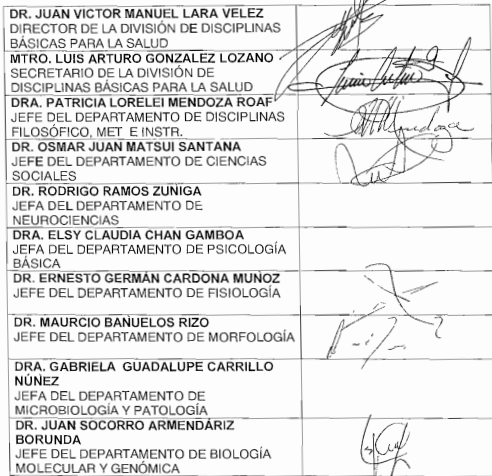 DR. JUAN VICTOR MANUEL LARA VELEZ
DIRECTOR DE LA DIVISIÓN DE DISCIPLINAS
BÁSICAS PARA LA SALUD
MTRO. LUIS ARTURO GONZALEZ LOZANO
SECRETARIO DE LA DIVISIÓN DE
DISCIPLINAS BÁSICAS PARA LA SALUD
DRA. PATRICIA LORELEI MENDOZA ROAF
JEFE DEL DEPARTAMENTO DE DISCIPLINAS
FILOSÓFICO, MET E INSTR.
DR. OSMAR JUAN MATSUI SANTANA
JEFE DEL DEPARTAMENTO DE CIENCIAS
SOCIALES
DR. RODRIGO RAMOS ZUÑIGA
JEFA DEL DEPARTAMENTO DE
NEUROCIENCIAS
DRA. ELSY CLAUDIA CHAN GAMBOA
JEFA DEL DEPARTAMENTO DE PSICOLOGÍA
BÁSICA
DR. ERNESTO GERMÁN CARDONA MUÑOZ
JEFE DEL DEPARTAMENTO DE FISIOLOGÍA
DR. MAURCIO BAÑUELOS RIZO
JEFE DEL DEPARTAMENTO DE MORFOLOGÍA
DRA. GABRIELA GUADALUPE CARRILLO
NÚÑEZ
JEFA DEL DEPARTAMENTO DE
MICROBIOLOGÍA Y PATOLOGÍA
DR. JUAN SOCORRO ARMENDÁRIZ
BORUNDA
JEFE DEL DEPARTAMENTO DE BIOLOGÍA
MOLECULAR Y GENÓMICA